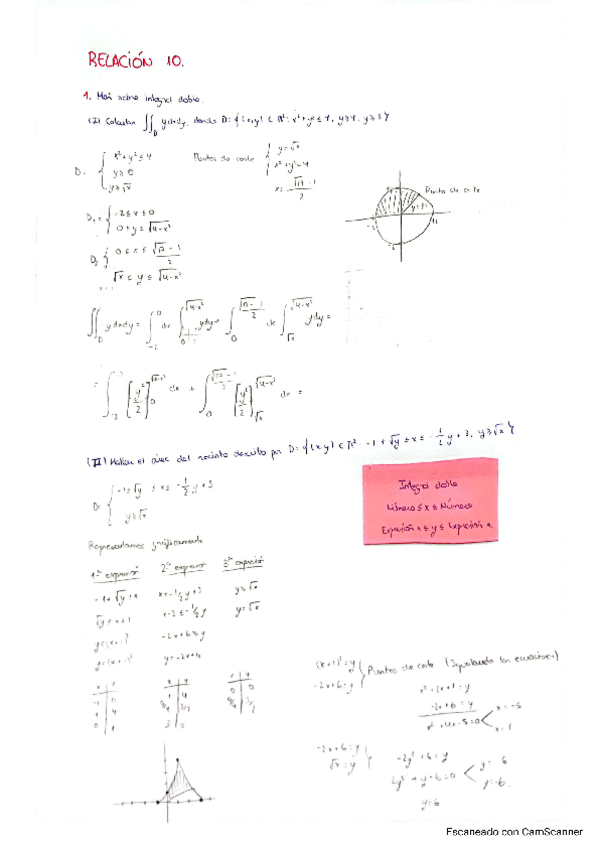 RELACIÓN 10.
1. Mas sobre integral doble.
(I) Calcular ∬_D y dxdy, donde D={(x,y) ∈ ℝ²: x²+y² ≤ 4,
D= { x²+y² ≤ 4
y ≥ 0
y ≥ √x
Puntos de corte { y=√x
x²+y²=4
x= (√17 - 1)/2
Punto de corte
D₁= { -2 ≤ x ≤ 0
0 ≤ y ≤ √(4-x²)
D₂ { 0 ≤ x ≤ (√17 - 1)/2
√x ≤ y ≤ √(4-x²)
∬_D y dxdy = ∫_{-2}^{0} dx ∫_{0}^{√(4-x²)} y dy + ∫_{0}^{(√17 - 1)/2} dx ∫_{√x}^{√(4-x²)} y dy =
= ∫_{-2}^{0} [y²/2]_{0}^{√(4-x²)} dx + ∫_{0}^{(√17 - 1)/2} [y²/2]_{√x}^{√(4-x²)} dx =
(II) Hallar el área del recinto descrito por D={(x,y) ∈ ℝ²: -1+√y ≤ x ≤ -1/2 y + 3, y ≥ √x}
D= { -1+√y ≤ x ≤ -1/2 y + 3
y ≥ √x
Integral doble
Número ≤ x ≤ Número
Expresión ≤ y ≤ Expresión
Representamos gráficamente
1ª expresión 2ª expresión 3ª expresión
-1+√y = x x = -1/2 y + 3 y ≥ √x
√y = x+1 x-3 = -1/2 y y = √x
-2x+6 = y
y = (x+1)² y = -2x+6
x y x y x y
-1 0
0 1
1 4 1 4
3 0
0 0
(x+1)² = y
-2x+6 = y
} Puntos de corte (Igualando las ecuaciones)
x²+2x+1 = y
-2x+6 = y
x²+4x-5=0 < x=-5
x=1
-2x+6 = y
√x = y }
-2y²+6 = y
2y²+y-6=0
Escaneado con CamScanner